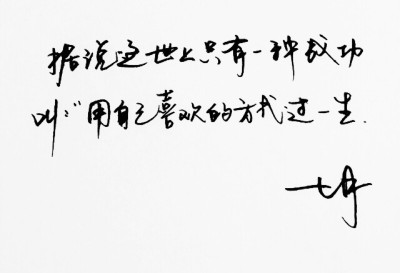 据说这世上只有一种成功
叫:"用自己喜欢的方式过一生.
七月